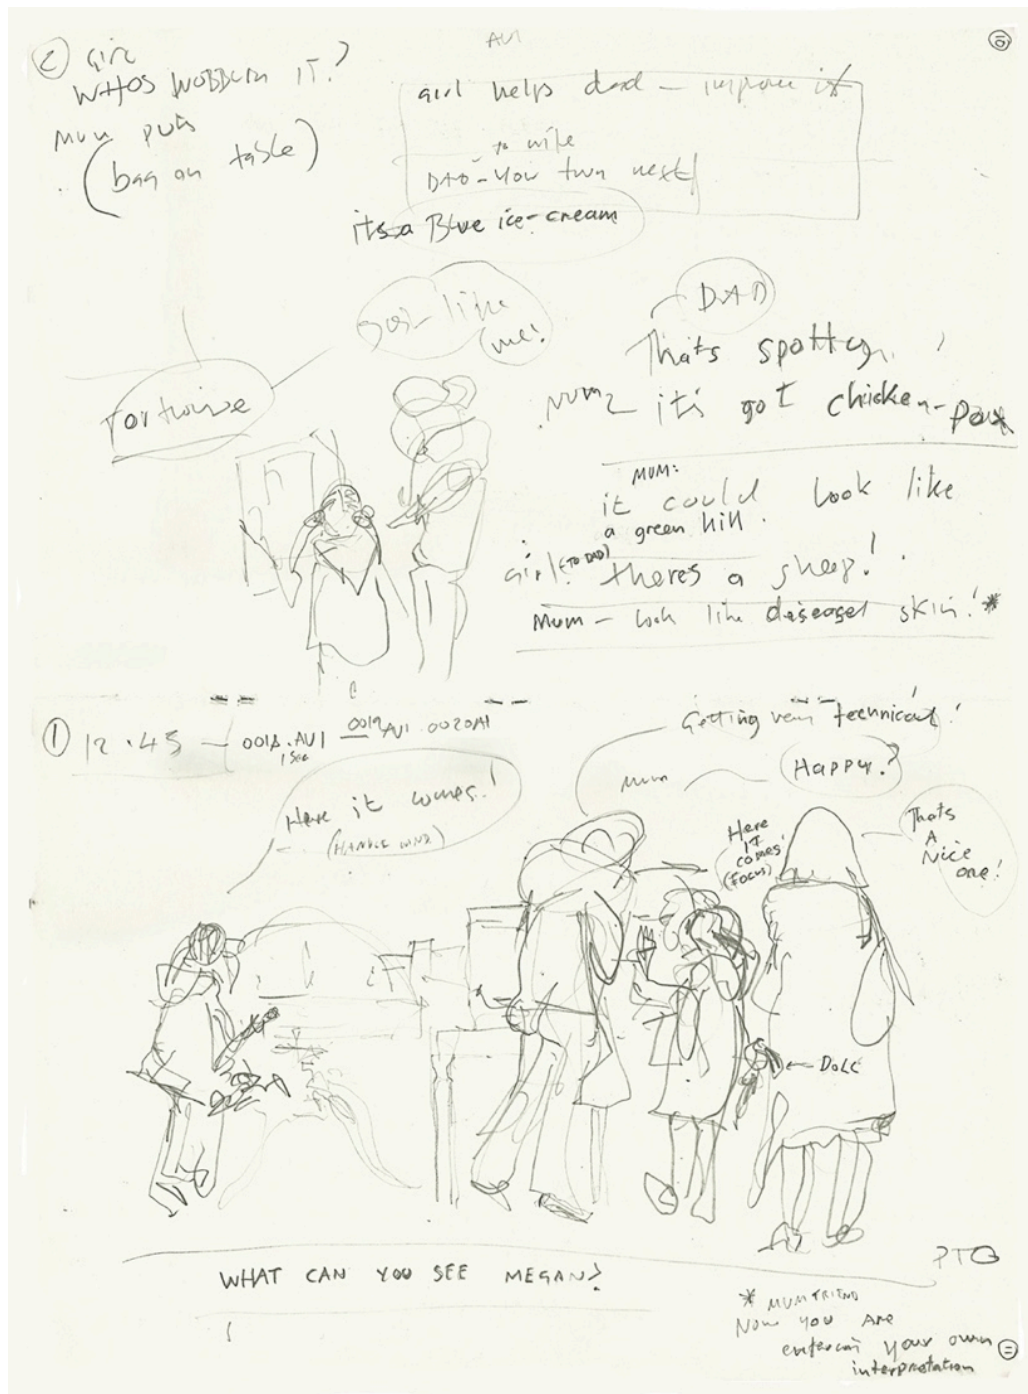 ② Girl
WHOS WOBBLIN IT?
Mum puts
(bag on table)
AVI
girl helps dad — improve it
to wife
DAD - Your turn next
its a Blue ice-cream
just like
me!
Tortoise
DAD
Thats spotty
MUM it's got chicken-pox
MUM:
it could look like
a green hill.
Girl (TO DAD) theres a sheep!
Mum - look like diseased skin! *
① 12.45 — 0018.AVI — 0019 AVI 0020AVI
Here it comes!
Getting very technical!
mum
Happy?
Here
IT
comes!
(FOCUS)
Thats
A
Nice
one!
← DOLL
WHAT CAN YOU SEE MEGAN?
PTO
* MUM FRIEND
Now you are
enterin your own
interpretation